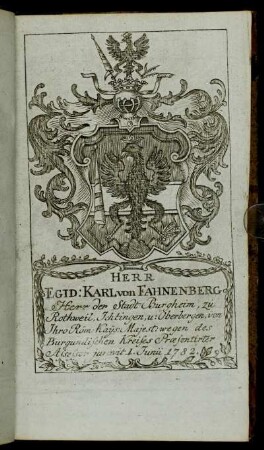 HERR
EGID: KARL von FAHNENBERG
Herr der Stadt Burgheim, zu
Rothweil, Ichtingen, u: Oberbergen, von
Ihro Röm: Kayß: Majest: wegen des
Burgundischen Kreises Præsentirter
Assessor jur: mit 1. Junii 1782.